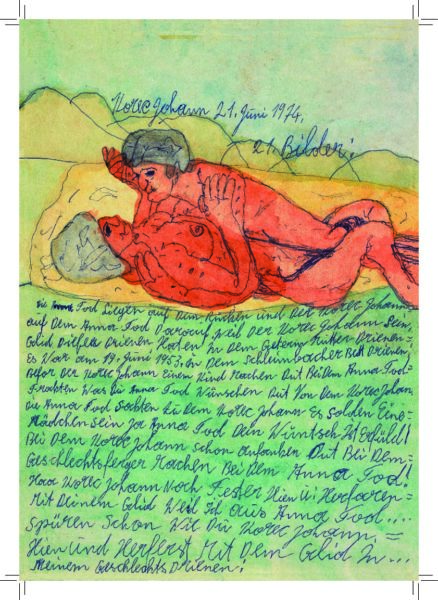 Korec Johann 21. Juni 1974.
21. Bilder!
Die Anna Tod Liegen auf Dem Rücken und Der Korec Johann
auf Dem Anna Tod Darauf, Weil Der Korec Johann Sein
Glid Drienen Haten In Dem Drienen =
Es War am 19. Juni 1953. In Dem Schleimbacher Bett Drienen,
Befor Der Korec Johann Einen Kind Machen Dut Bei Dem Anna Tod =
Frachten Was Die Anna Tod Wünschen Dut Von Dem Korec Johan
Die Anna Tod Sachten Zu Dem Korec Johann Es Solden Eine =
Mädchen Sein Ja Anna Tod Dein Wuntsch Ist Erfüld!
Bei Dem Korec Johann Schon anfanken Dut Bei Dem =
Geschlechtsferger Machen Bei Dem Anna Tod!
Korec Johann Noch Fester Hien Ü: Herfaren =
Mit Deinem Glid Weil Ich aus Anna Tod ...
Spüren Schon Wie Du Korec Johann. =
Hien und Herferst Mit Dem Glid In ...
Meinem Geschlechts Drienen!